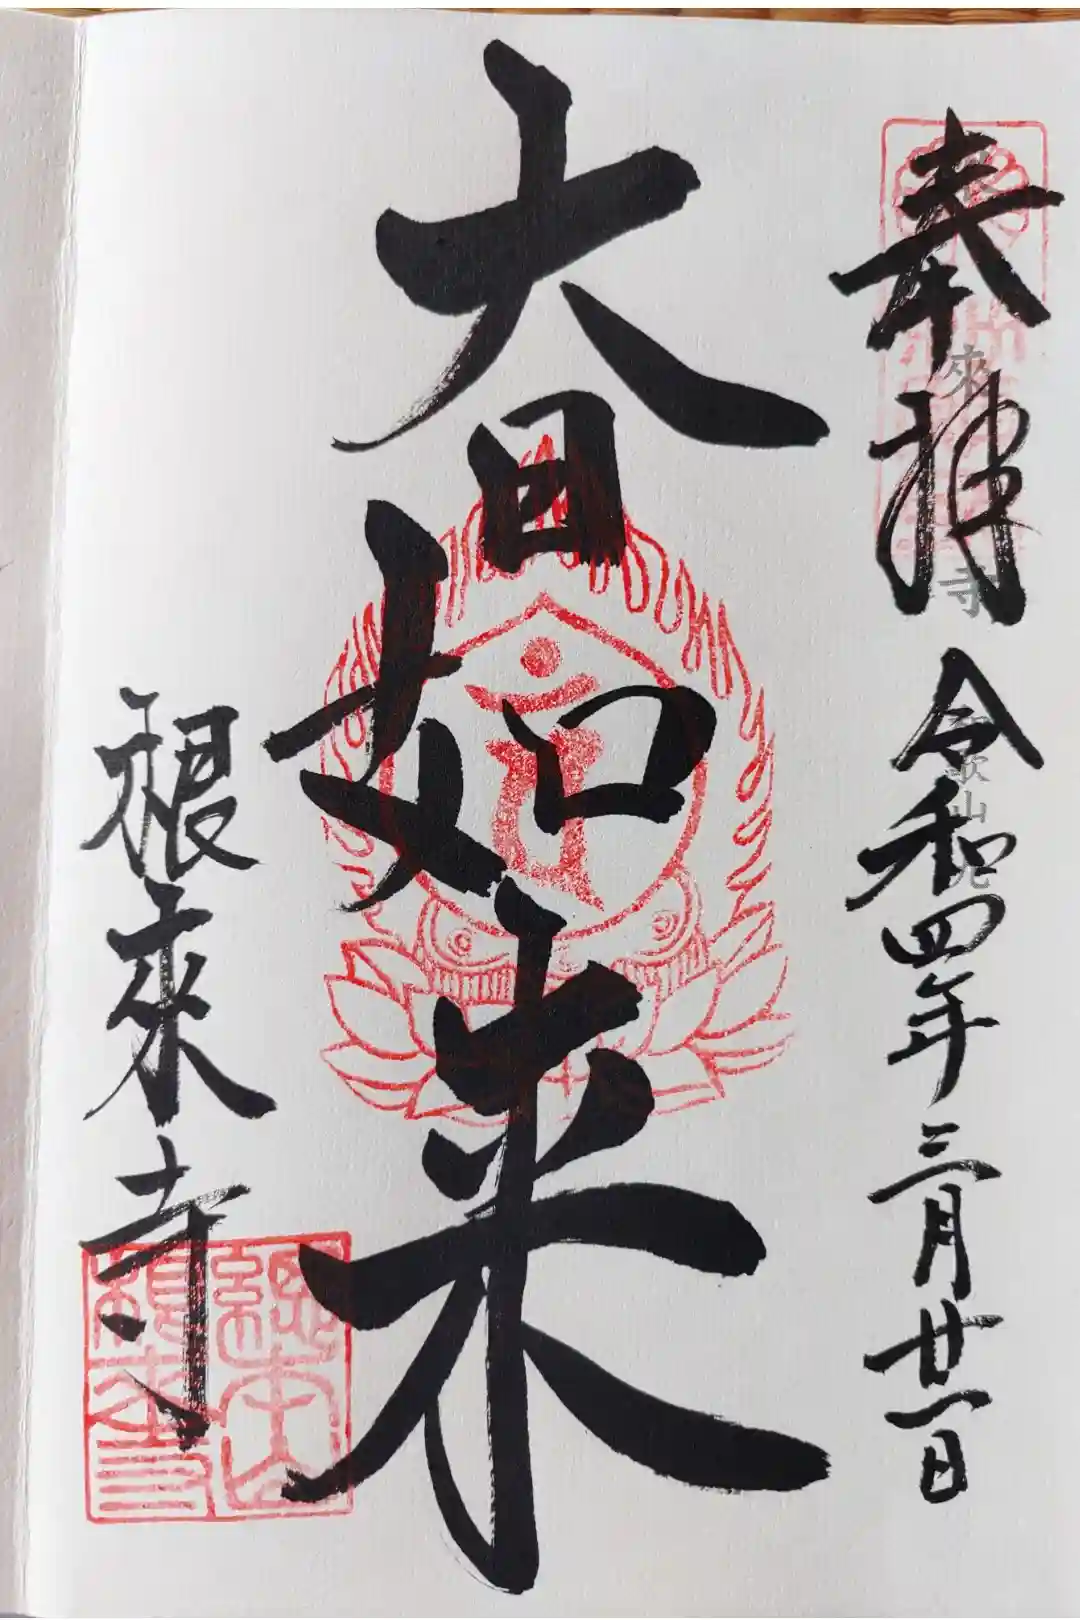 奉拝
令和四年三月廿一日
大日如来
根來寺